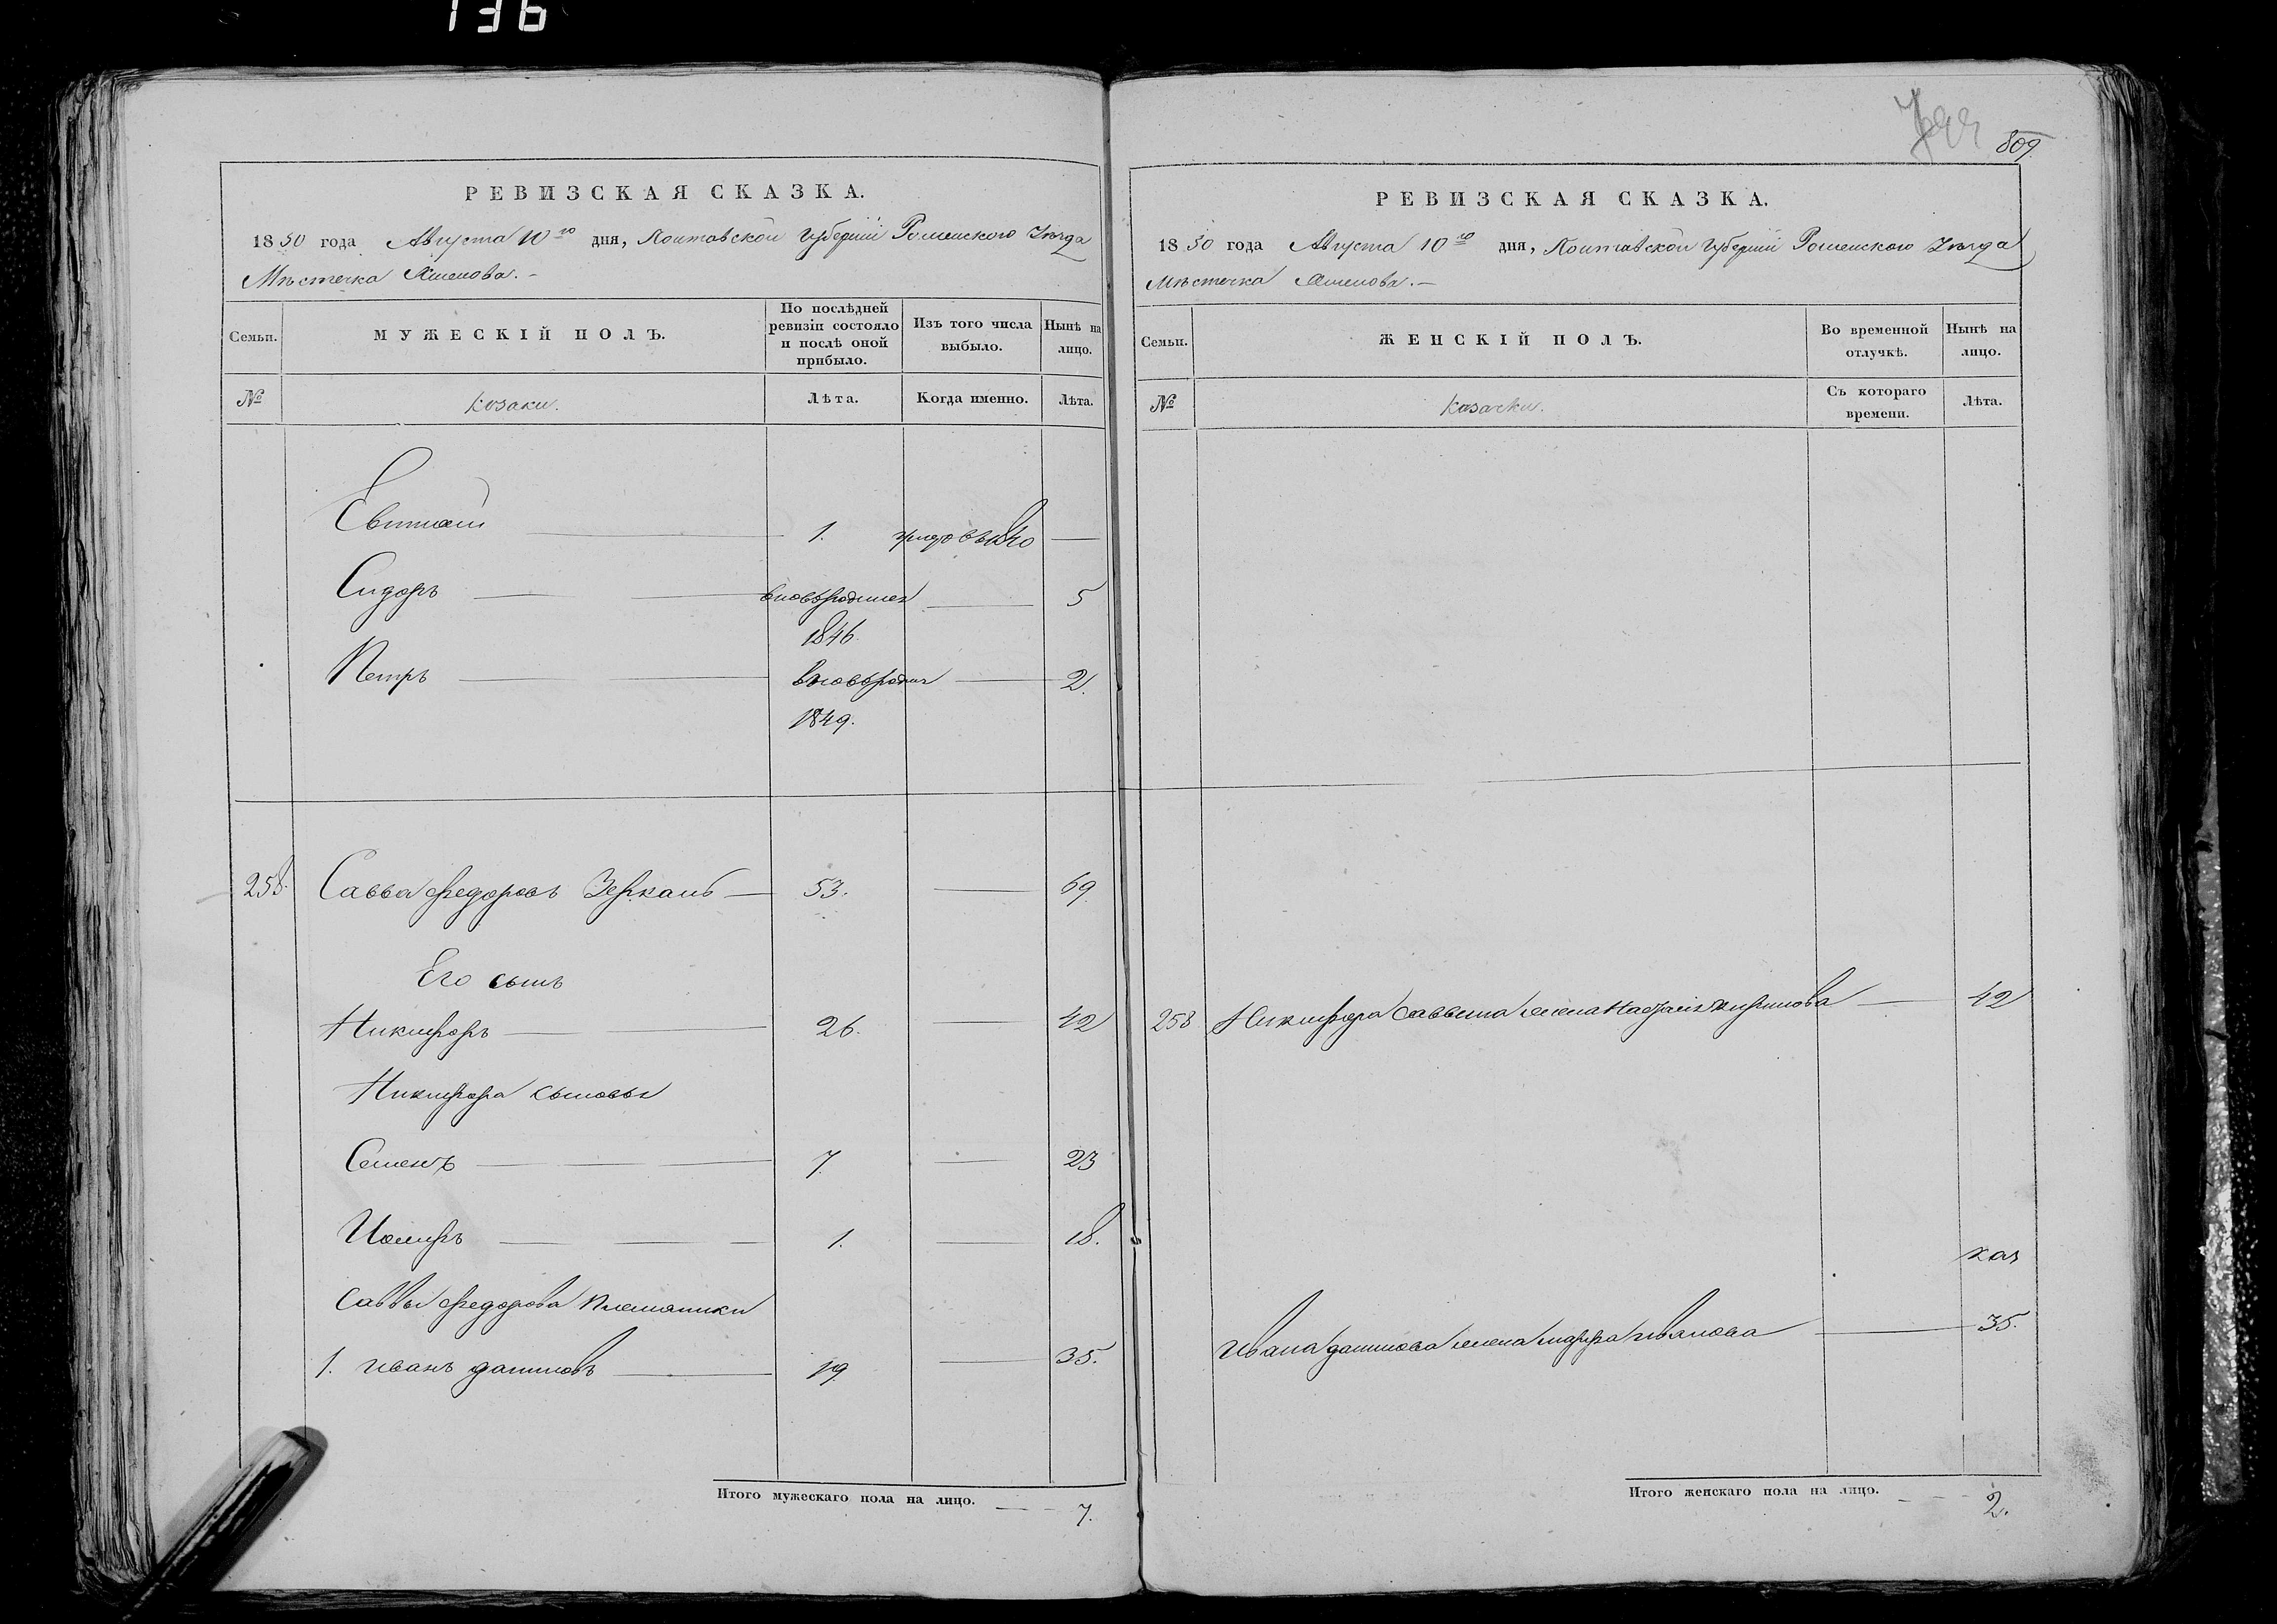 136
809
РЕВИЗСКАЯ СКАЗКА.
1850 года Августа 10го дня, Полтавской Губерніи Роменского Уѣзда
Мѣстечка
Семьи.
МУЖЕСКІЙ ПОЛЪ.
По послѣдней ревизіи состояло и послѣ оной прибыло.
Изъ того числа выбыло.
Нынѣ на лицо.
№
Козаки.
Лѣта.
Когда именно.
Лѣта.
1.
Сидоръ вновьродился 5
1846.
Петръ вновьродил 2.
1849.
258. Савва Федоровъ 53. 69.
Его сынъ
Никифоръ 26. 42
Никифора сыновья
Семенъ 7. 23
1. 18.
Саввы Федорова племянники
1. Иванъ Даниловъ 19 35.
Итого мужескаго пола на лицо. 7.
РЕВИЗСКАЯ СКАЗКА.
1850 года Августа 10го дня, Полтавской Губерніи Роменского Уѣзда
Мѣстечка
Семьи.
ЖЕНСКІЙ ПОЛЪ.
Во временной отлучкѣ.
Нынѣ на лицо.
№
Козачки.
Съ котораго времени.
Лѣта.
258 Никифора Саввина жена 42
Ивана Данилова жена Марфа Иванова 35.
Итого женскаго пола на лицо. 2.